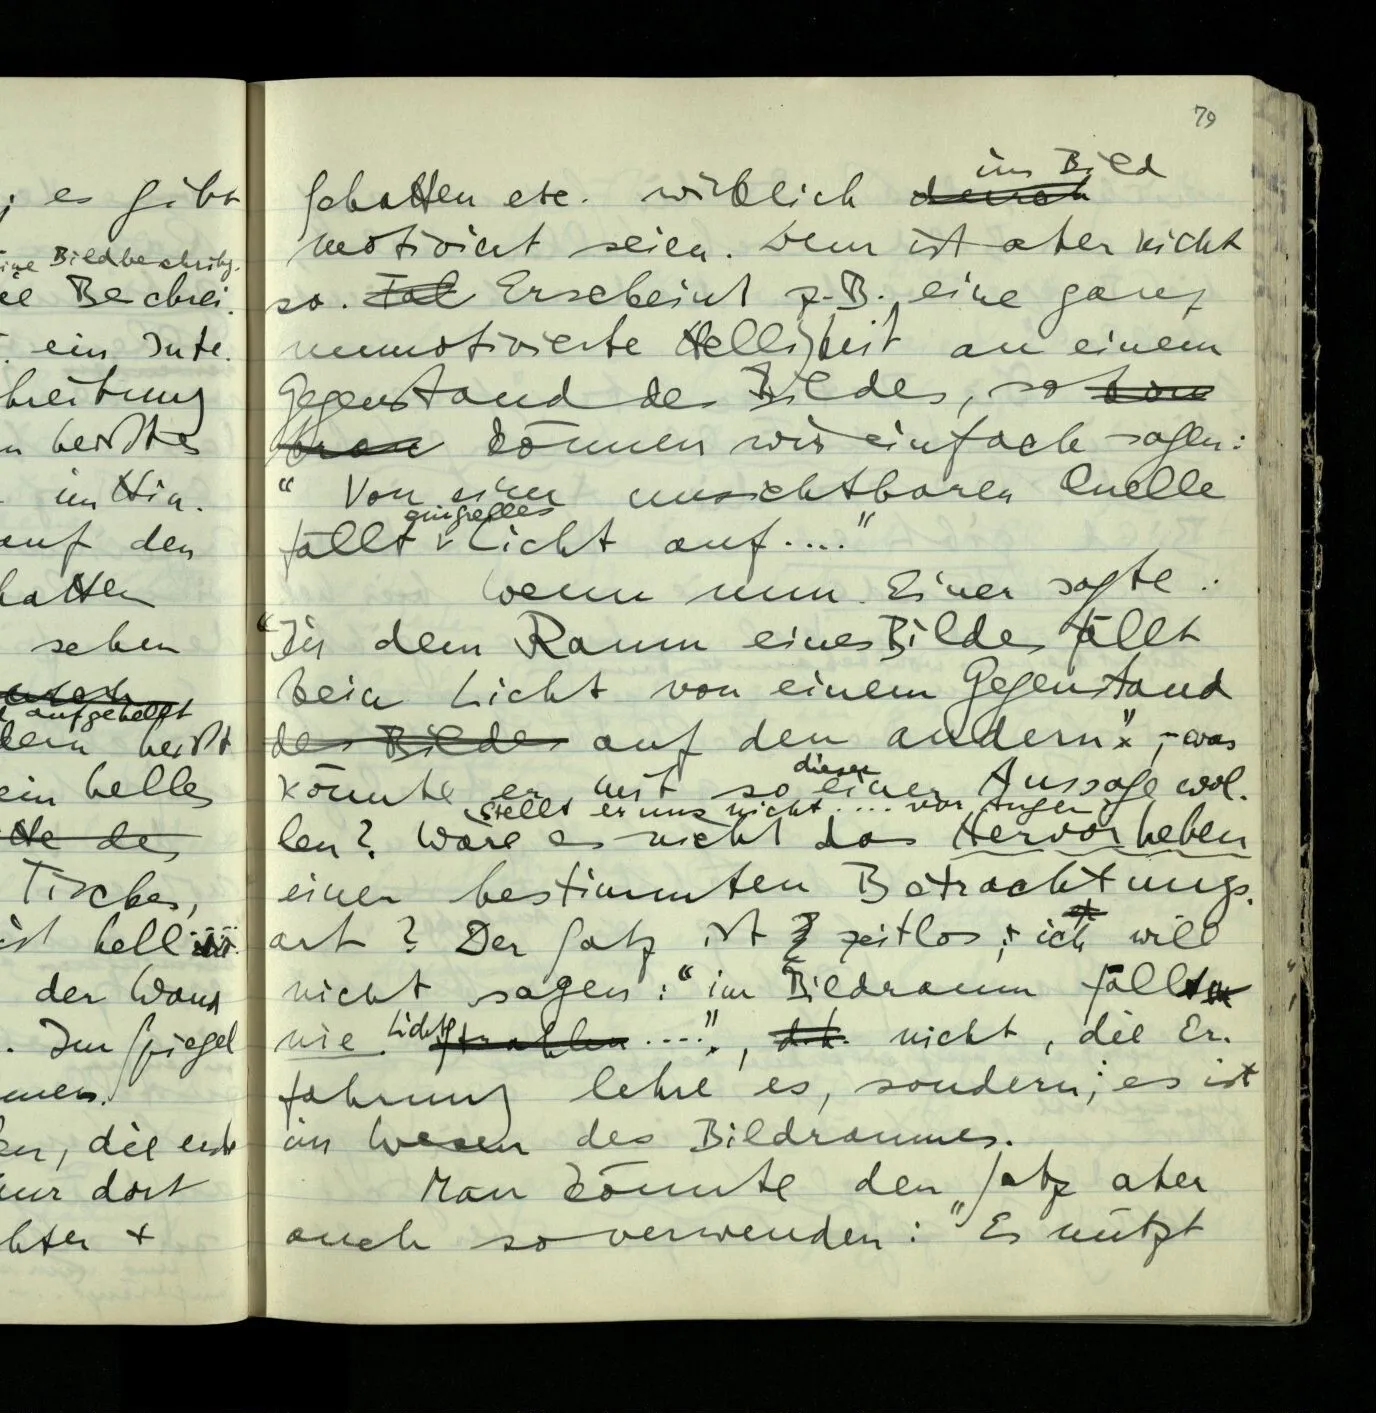 ; es gibt
eine Bildbeschrbg.
ie Beschrei.
ein Inte.
breitung
n heißt es
im Hin.
auf den
hatten
sehen
aufgehellt
dern heißt
ein helles
tte des
Tisches,
ist hell
der Wand
. Im Spiegel
men.
en, die erst
nur dort
chter +
79
im Bild
Schatten etc. wirklich durch
motiviert seien. Dem ist aber nicht
so. Fäl Erscheint z.B. eine ganz
unmotivierte Helligkeit an einem
Gegenstand des Bildes, so kön
können wir einfach sagen:
“ Von einer unsichtbaren Quelle
ein grelles
fällt Licht auf....”
Wenn nun Einer sagte:
“In dem Raum eines Bildes fällt
kein Licht von einem Gegenstand
des Bildes auf den andern”, – was
dieser
könnte er mit so einer Aussage wol-
stellt er uns nicht .... vor Augen
len? Wäre es nicht das Hervorheben
einer bestimmten Betrachtungs.
art? Der Satz ist zeitlos; ich will
nicht sagen: “im Bildraum fällt
nie Licht strahlen ....”, d.h. nicht, die Er.
fahrung lehre es, sondern; es ist
im Wesen des Bildraumes.
Man könnte den Satz aber
auch so verwenden: “Es nützt